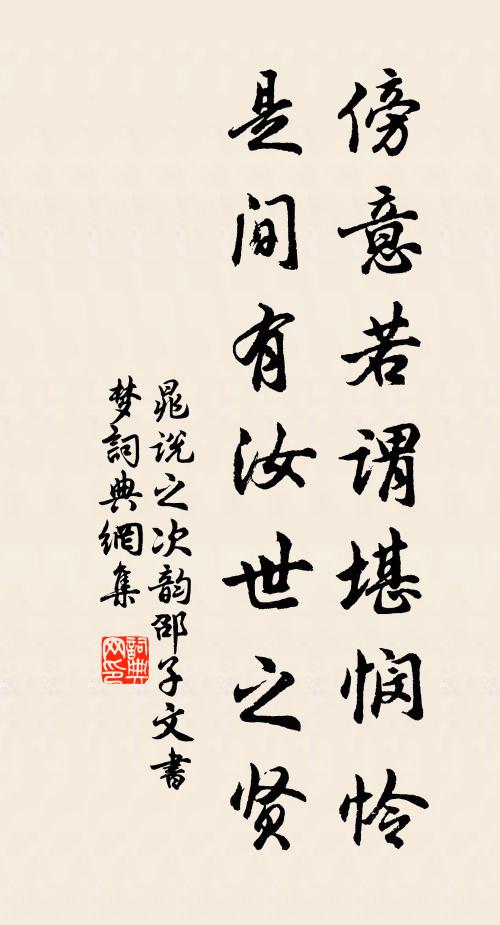 傍意若谓堪悯怜
是间有汝世之贤
晁说之次韵邵子文书
梦词典网集
詞典
网印